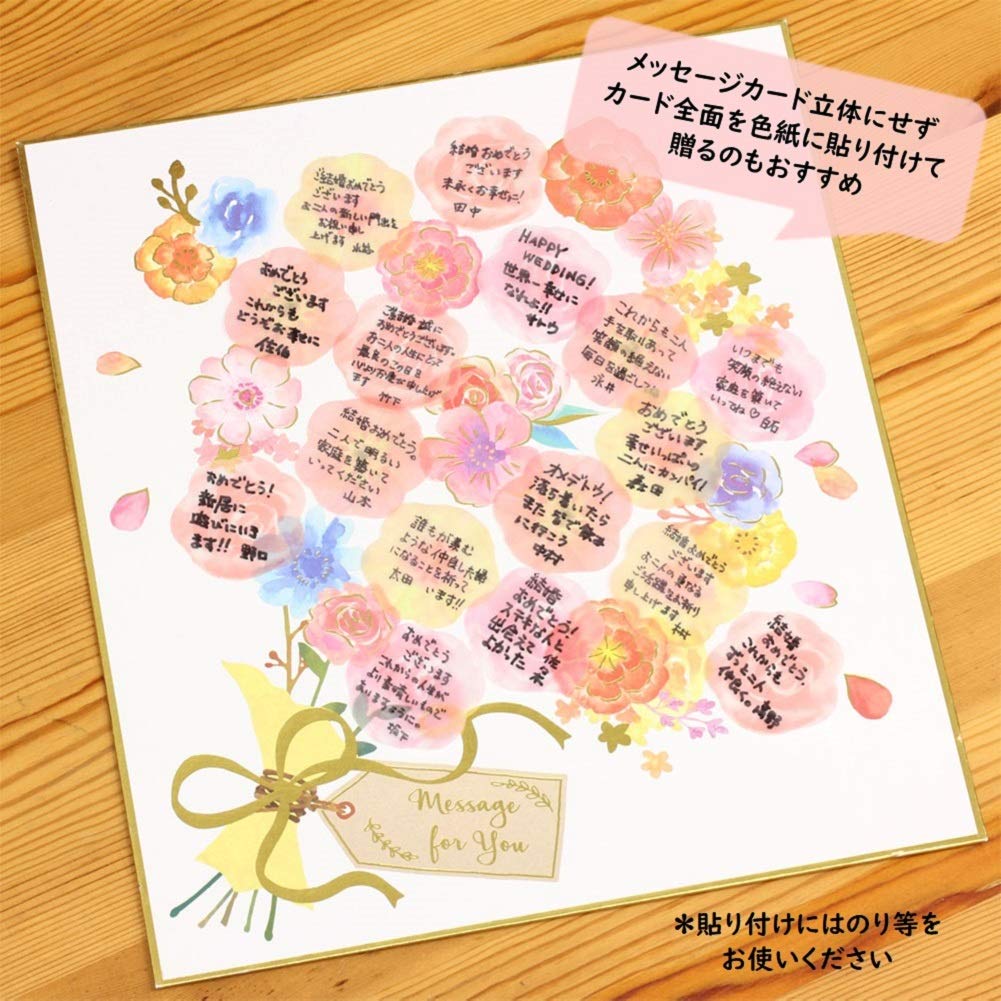 メッセージカード立体にせず
カード全面を色紙に貼り付けて
贈るのもおすすめ
結婚おめでとう
ございます
お二人の新しい門出を
お祝い申し
上げます
結婚おめでとう
ございます
末永くお幸せに!
田中
HAPPY
WEDDING!
世界一幸せに
なれよ!!
サトウ
おめでとう
ございます
これからも
どうぞお幸せに
佐伯
ご結婚誠に
おめでとうございます
お二人の人生にとって
最良のこの日を
心よりお慶び申し上げ
ます 竹下
これからも二人
手を取りあって
笑顔の絶えない
毎日を過ごしてね
永井
いつまでも
笑顔の絶えない
家庭を築いて
いってね♡
結婚おめでとう。
二人で明るい
家庭を築いて
いってください
山本
おめでとう
ございます
幸せいっぱいの
二人にカンパイ!
森田
おめでとう!
新居に
遊びにいき
ます!! 野口
オメデトウ!
落ち着いたら
また皆で飲み
に行こう
中村
誰もが羨む
ような仲良し夫婦
になることを祈って
います!!
太田
結婚おめでとう
ございます
お二人のまもなる
ご活躍をお祈り
申し上げます
結婚
おめでとう!
ステキな人と
出会えて
よかった
佐々木
おめでとう
ございます
これからの人生が
より素晴しいもので
ありますように。
坂下
結婚
おめでとう。
これからも
ずっと
仲良くね。
Message
for You
*貼り付けにはのり等を
お使いください